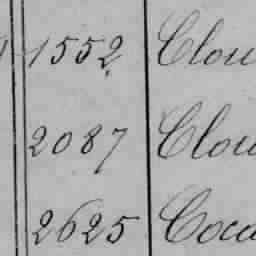 1552 Clou
2087 Clou
2625 Coca